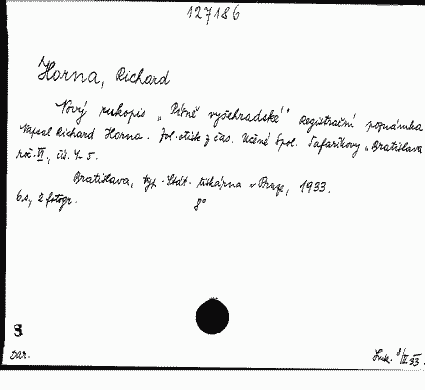 127186
Horna, Richard
Nový rukopis „Pitně vyšehradské“ Registrační poznámka
Napsal Richard Horna. Zvl. otisk z čas. Učené Spol. Šafaříkovy „Bratislava
roč. VI, čís. 4-5.
Bratislava, typ. Stát. tiskárna v Praze, 1933.
6 s, 2 fotogr. 8°
S
Dar.
/IX 33.